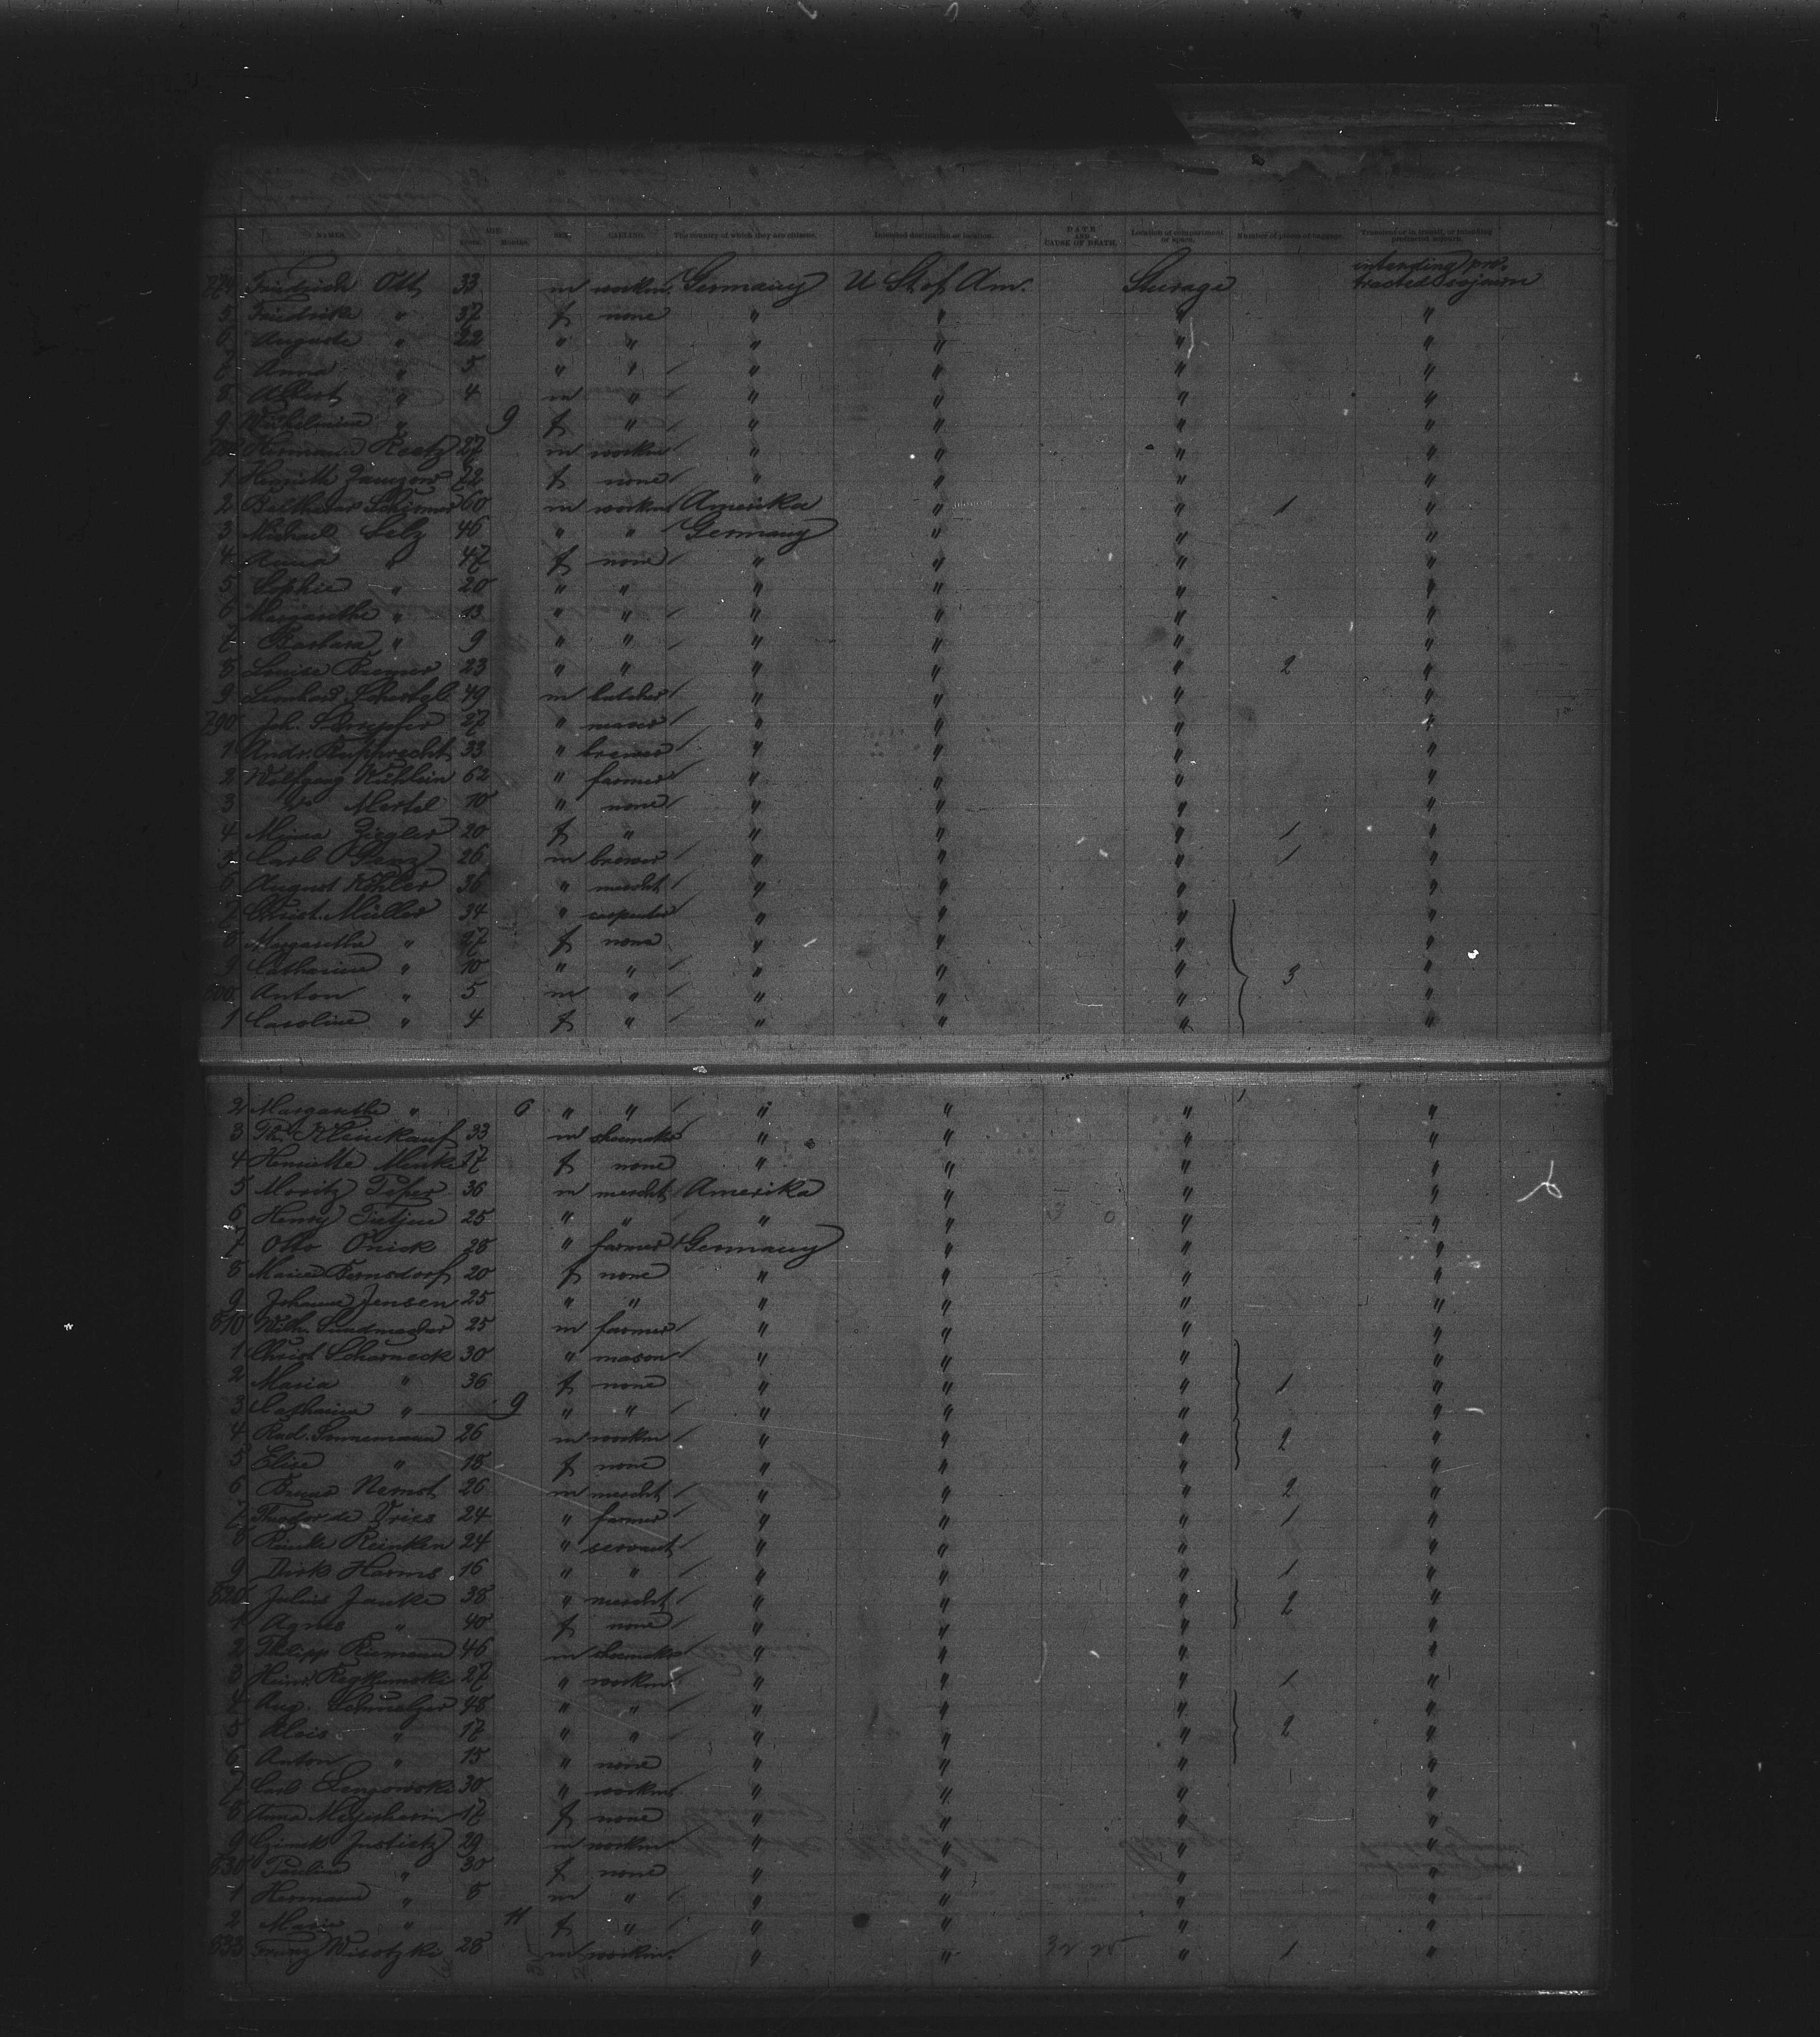 NAMES. AGE. Years. Months. SEX. CALLING. The country of which they are citizens. Intended destination or location. DATE AND CAUSE OF DEATH. Location of compartment or space. Number of pieces of baggage. Transient or in transit, or intending protracted sojourn.
774 Friedrich Ott 33 m workm. Germany U St of Am. Sturage intending pro- tracted sojourn
5 Friedrike " 37 f none " " " "
6 Auguste " 22 " " " " " "
7 Anna " 5 " " " " " "
8 Albert " 4 m " " " " "
9 Wilhelmine " 9 f " " " " "
780 Hermann Raetz 27 m workm " " " "
1 Henriette 22 f none " " " "
2 Balthasar Schirmer 60 m workm Amerika " " 1 "
3 Michael Selz 46 " " Germany " " "
4 Anna " 47 f none " " " "
5 Sophie " 20 " " " " " "
6 Margarethe " 13 " " " " " "
7 Barbara " 9 " " " " " "
8 Louise 23 " " " " " 2 "
9 Leonhard 49 m butcher " " " "
790 Joh. 27 " " " " "
1 Andr. Rupprecht 33 " brewer " " " "
2 Wolfgang Kühlein 62 " farmer " " " "
3 Mertel 10 " none " " " "
4 Ziegler 20 f " " " " 1 "
5 Carl 26 m brewer " " " 1 "
6 August Köhler 36 " mercht " " " "
7 Christ. Müller 34 " carpenter " " " "
8 Margarethe " 27 f none " " " "
9 Catharina " 10 " " " " " 3 "
800 Anton " 5 m " " " " "
1 Caroline " 4 f " " " " "
2 Margarethe " 6 " " " " " "
3 Kleinkauf 33 m shoemaker " " " "
4 Henriette Menke 17 f none " " " "
5 Moritz 36 m mercht Amerika " " "
6 Henry Tietjen 25 " " " " " "
7 Otto Onick 28 " farmer Germany " " "
8 Maria Bernsdorf 20 f none " " " "
9 Johanna Jensen 25 " " " " " "
810 Wilh. Sundmacher 25 m farmer " " " "
1 Christ Scharneck 30 " mason " " " "
2 Maria " 36 f none " " " 1 "
3 Catharina " 9 " " " " " "
4 Rud. Sonnemann 26 m workm " " " 2 "
5 Elise " 18 f none " " " "
6 Bruno Nernst 26 m mercht " " " 2 "
7 Theodor de Vries 24 " farmer " " " 1 "
8 Reinken 24 " servant " " " "
9 Dirk Harms 16 " " " " " 1 "
820 Julius Jantke 38 " mercht " " " 2 "
1 Agnes " 40 f none " " " "
2 Philipp Riemann 46 m shoemaker " " " "
3 Heinr. 27 " workm " " " 1 "
4 Aug. Schmelzer 48 " " " " " "
5 Alois " 17 " " " " " 2 "
6 Anton " 15 " none " " " "
7 Carl 30 " workm " " " "
8 Anna 17 f none " " " "
9 29 m workm " " " "
830 Pauline " 30 f none " " " "
1 Hermann " 8 m " " " " "
2 Marie " 11 f " " " " "
833 Franz Wisotzki 28 m workm. " " " 1 "